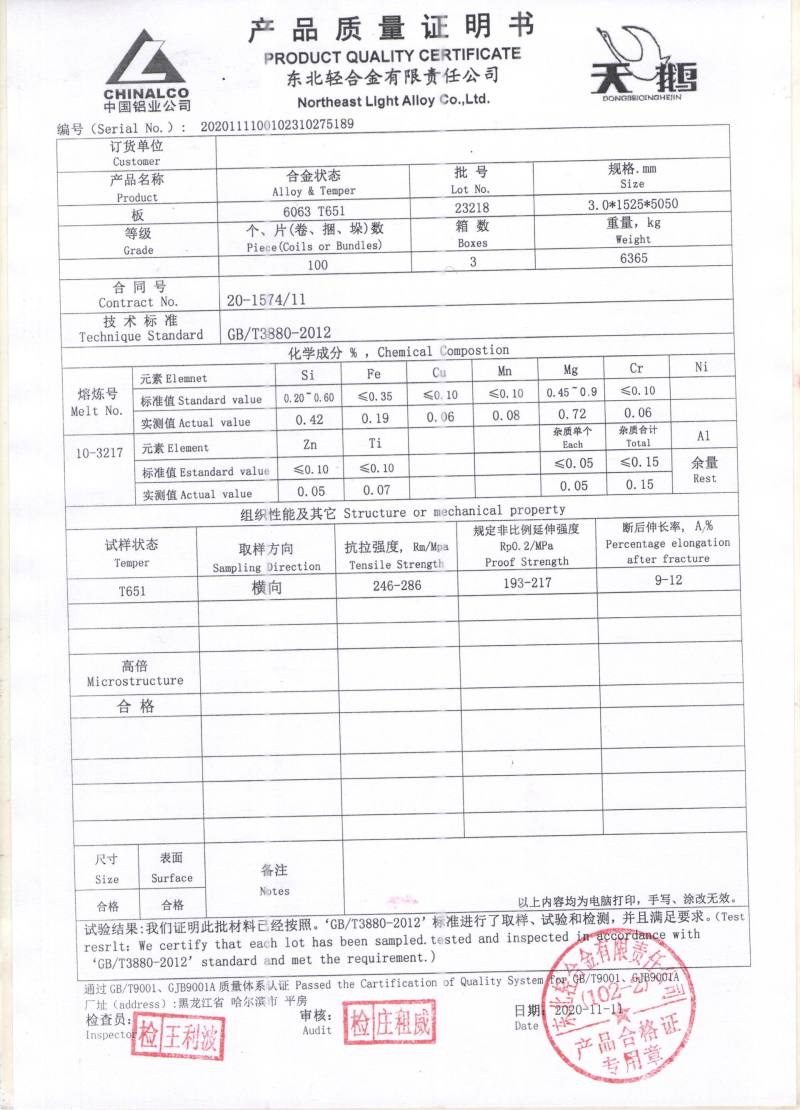 产品质量证明书
PRODUCT QUALITY CERTIFICATE
东北轻合金有限责任公司
Northeast Light Alloy Co.,Ltd.
CHINALCO
中国铝业公司
天鹅
DONGBEIQINGHEJIN
编号（Serial No.）: 2020111100102310275189
订货单位
Customer
产品名称 合金状态 批 号 规格.mm
Product Alloy & Temper Lot No. Size
板 6063 T651 23218 3.0*1525*5050
等级 个、片(卷、捆、垛)数 箱 数 重量，kg
Grade Piece(Coils or Bundles) Boxes Weight
100 3 6365
合 同 号
Contract No. 20-1574/11
技 术 标 准
Technique Standard GB/T3880-2012
化学成分 % ，Chemical Compostion
熔炼号
Melt No.
元素 Elemnet Si Fe Cu Mn Mg Cr Ni
标准值 Standard value 0.20~0.60 ≤0.35 ≤0.10 ≤0.10 0.45~0.9 ≤0.10
实测值 Actual value 0.42 0.19 0.06 0.08 0.72 0.06
10-3217
元素 Element Zn Ti 杂质单个 Each 杂质合计 Total Al
标准值 Estandard value ≤0.10 ≤0.10 ≤0.05 ≤0.15 余量 Rest
实测值 Actual value 0.05 0.07 0.05 0.15
组织性能及其它 Structure or mechanical property
试样状态 取样方向 抗拉强度, Rm/Mpa 规定非比例延伸强度 断后伸长率, A,%
Temper Sampling Direction Tensile Strength Rp0.2/MPa Percentage elongation
Proof Strength after fracture
T651 横向 246-286 193-217 9-12
高倍
Microstructure
合 格
尺寸 表面 备注
Size Surface Notes
合格 合格
以上内容均为电脑打印，手写、涂改无效。
试验结果:我们证明此批材料已经按照。‘GB/T3880-2012’标准进行了取样、试验和检测，并且满足要求。(Test
resrlt: We certify that each lot has been sampled.tested and inspected in accordance with
‘GB/T3880-2012’ standard and met the requirement.)
通过 GB/T9001、GJB9001A 质量体系认证 Passed the Cartification of Quality System for GB/T9001、GJB9001A
厂址（address）:黑龙江省 哈尔滨市 平房
检查员: 检 王利波 审核: 检 庄祖威 日期: 2020-11-11
Inspector Audit Date
东北轻合金有限责任公司
(102-2)
产品合格证
专用章